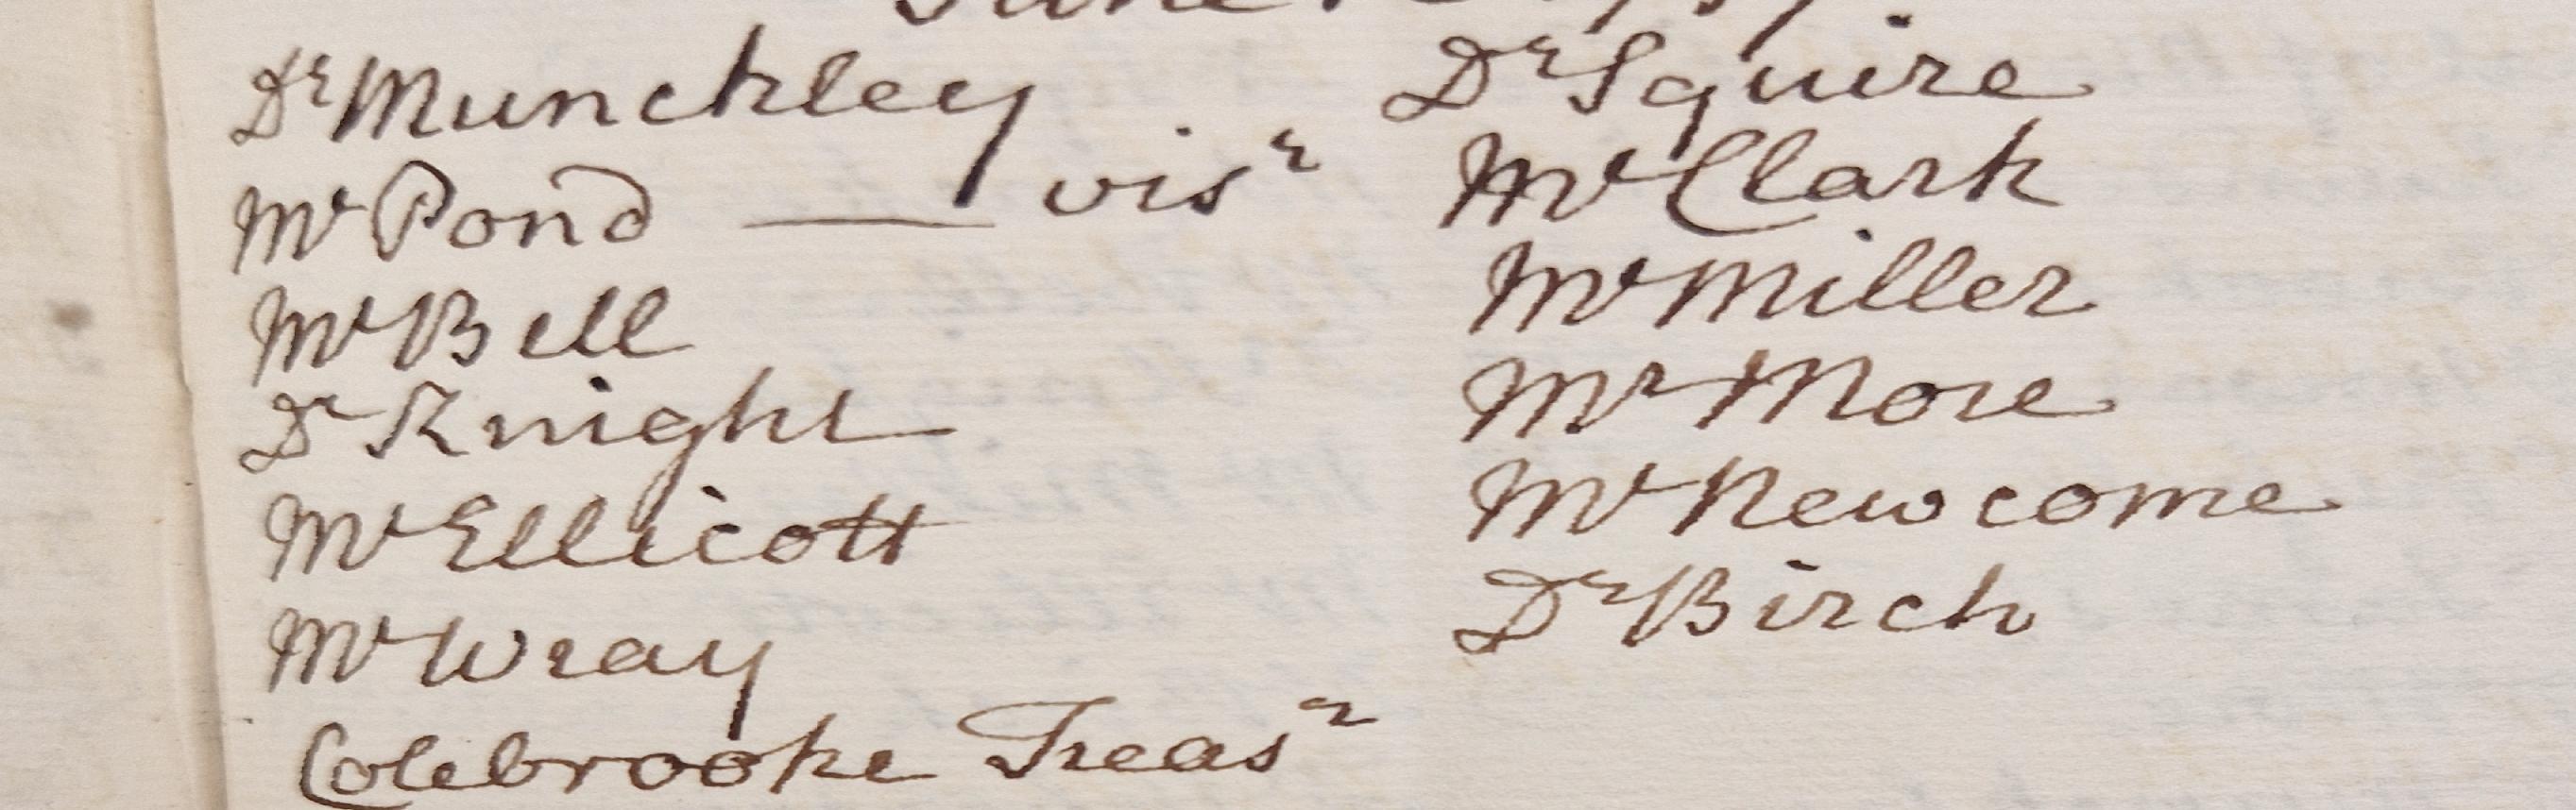 June
Dr Munckley
Mr Pond — visr
Mr Bell
Dr Knight
Mr Ellicott
Mr Wray
Colebrooke Treasr
Dr Squire
Mr Clark
Mr Miller
Mr More
Mr Newcome
Dr Birch